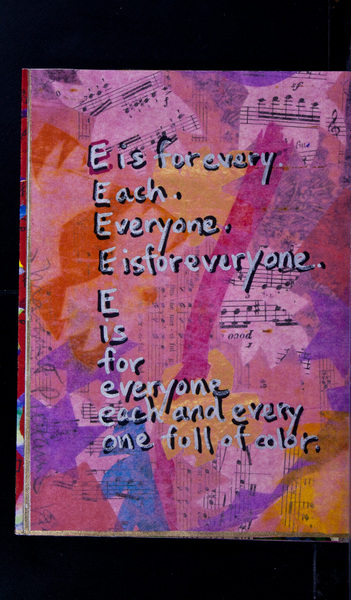 E is for every.
Each.
Everyone.
E isforeveryone.
E
is
for
everyone
each and every
one full of color.
poco